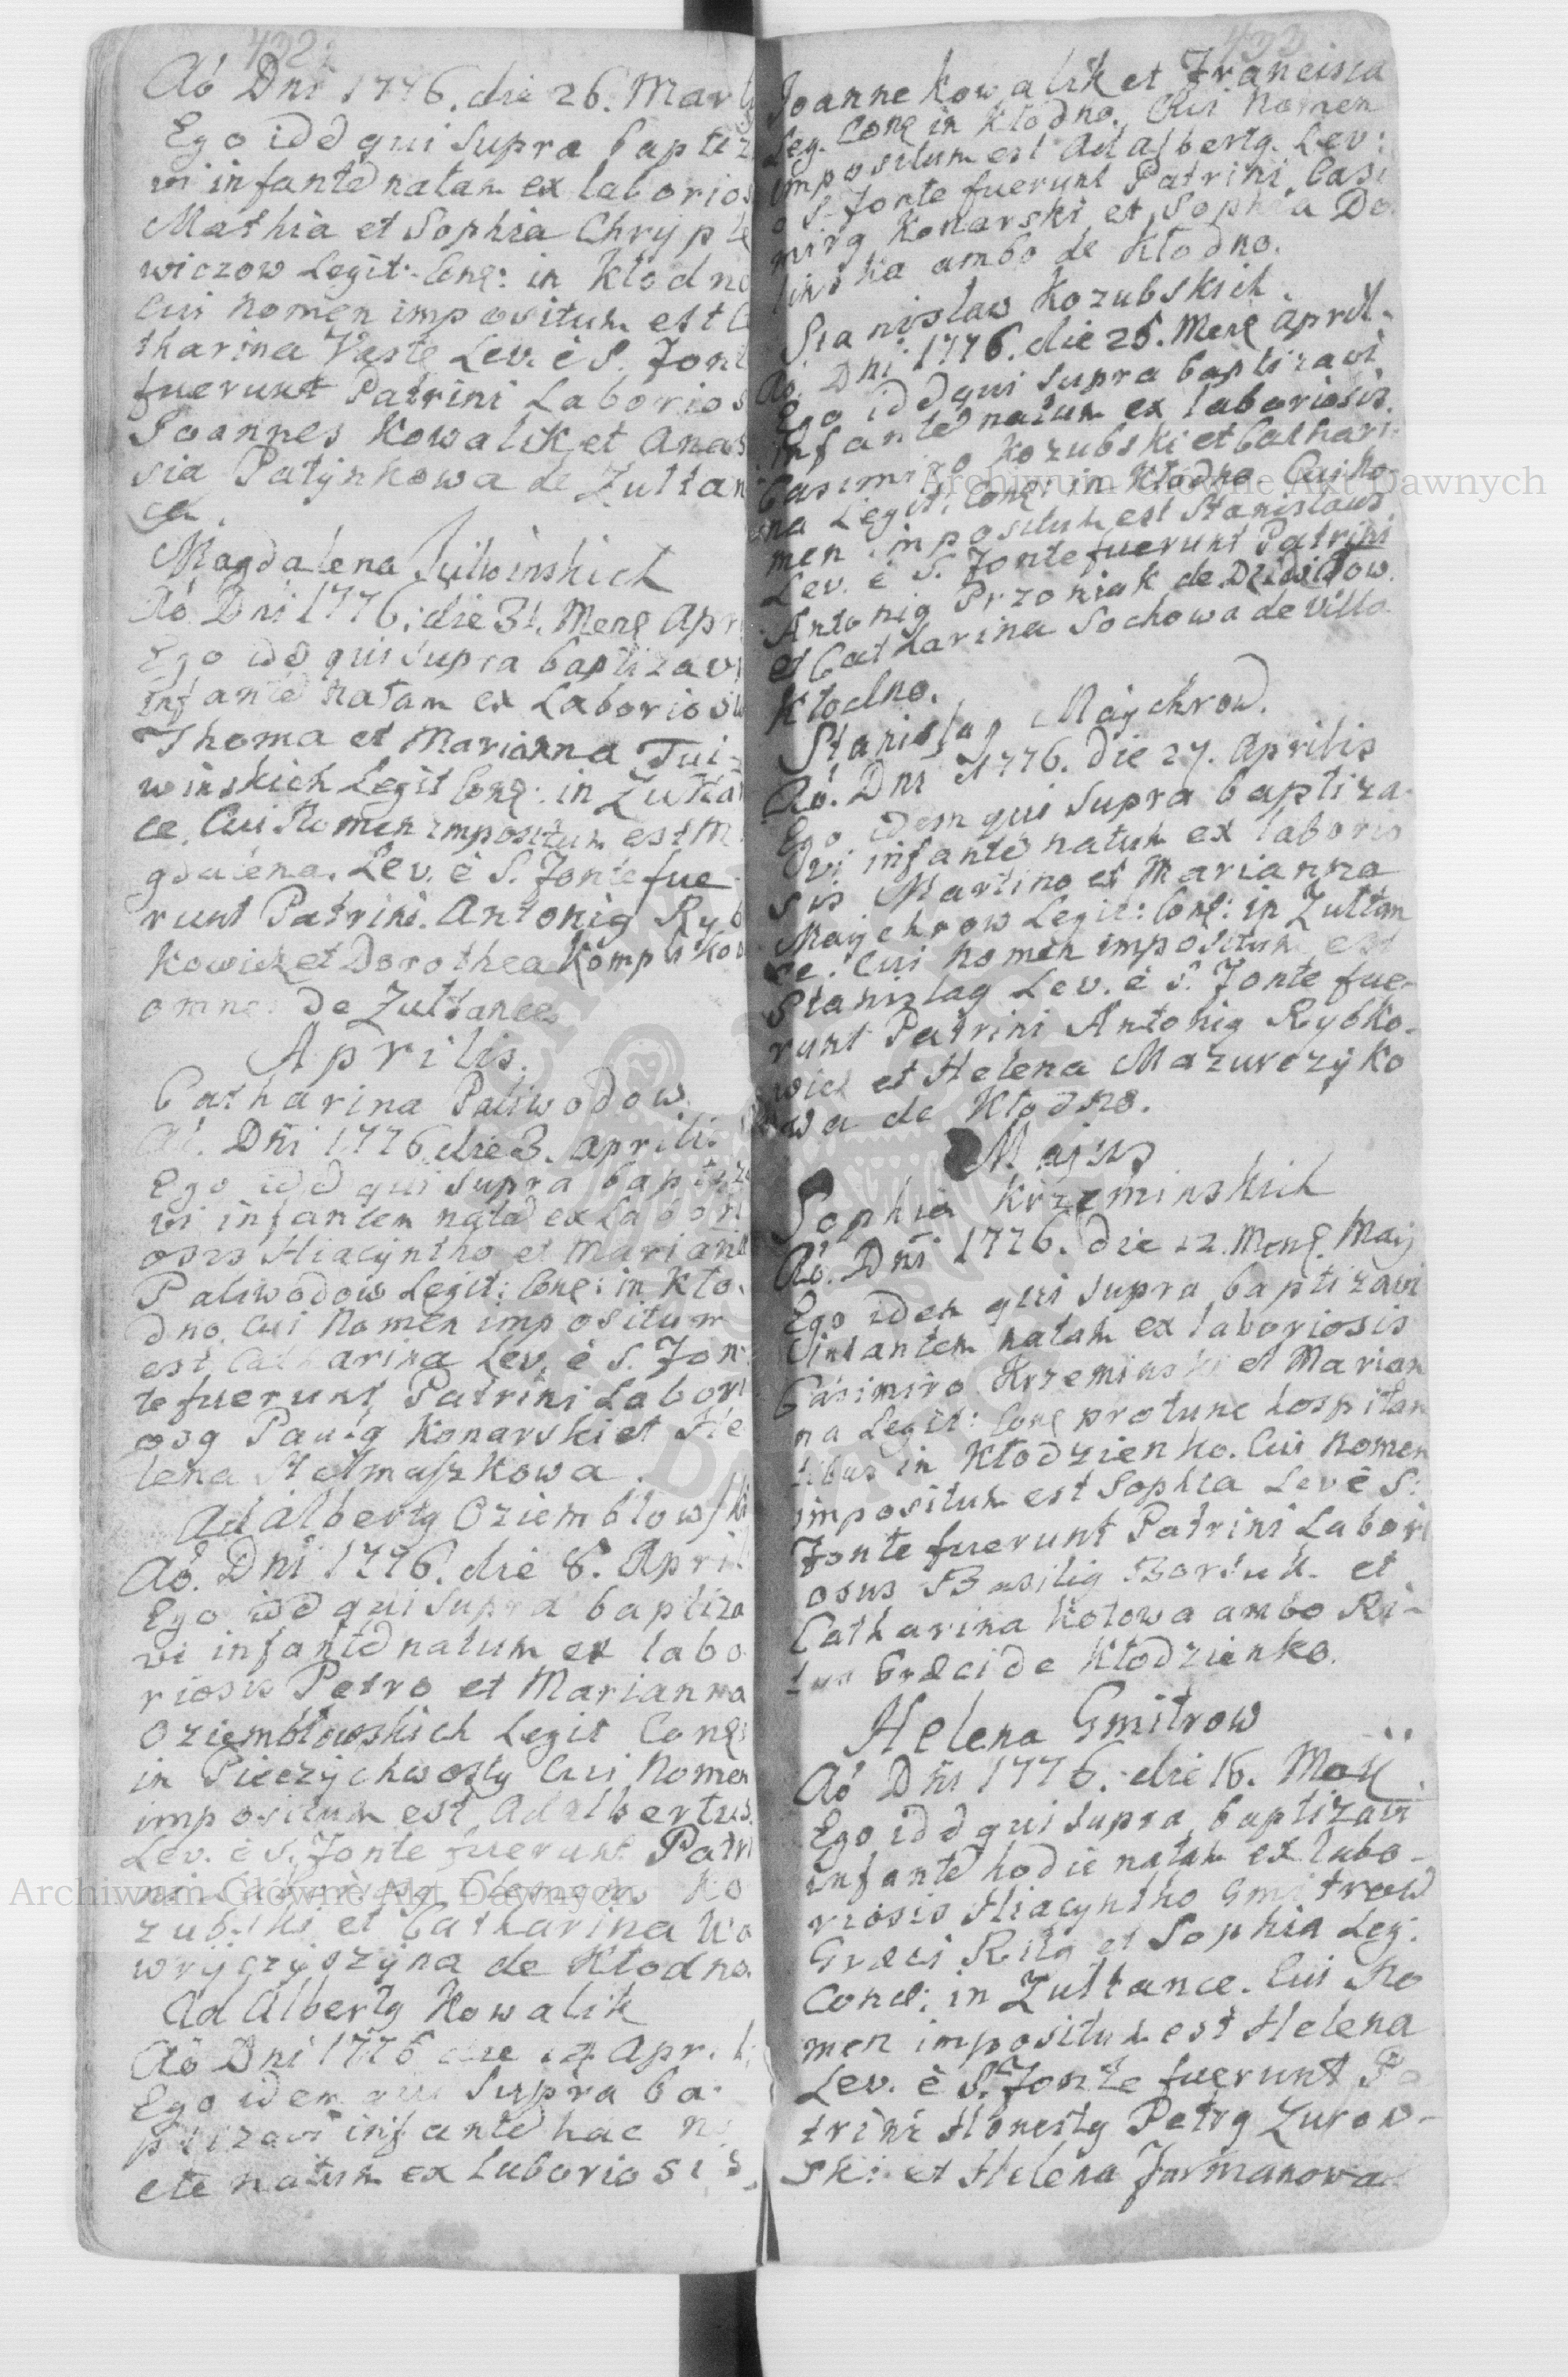 432
Ao Dni 1776. die 26. Marti
Ego idd qui Supra baptiz
vi infante natam ex laborios
Mathia et Sophia Chrypte
wiczow Legit. Conq: in Kłodno
Cui Nomen impositum est Ca
tharina Veste Lev. è S. Font
fuerunt Patrini Laborios
Joannes Kowalik et Anas
sia Patynkowa de Zułtan
ce.
Magdalena Julwinskich
Ao Dni 1776. die 31. Menq Apr
Ego idd qui Supra baptizavi
infante natam ex Laboriosis
Thoma et Marianna Tul-
winskich Legit Conq: in Zułtan
ce. Cui Nomen impositum est Ma
gdalena. Lev. è S. Fonte fue
runt Patrini. Antonig Ryb
kowicz et Dorothea Komplikow
omnes de Zułtance
Aprilis.
Catharina Paliwodow.
Ao. Dni 1776 die 3. Aprilis
Ego idd qui Supra baptiza
vi infantem natã ex Labori
osis Hiacyntho et Mariana
Paliwodow Legit: Conq: in Kło-
dno. Cui Nomen impositum
est Catharina Lev. è S. Fon
te fuerunt Patrini Labori
osg Paulg Konarski et He
lena Szałmaszkowa.
Adalbertg Oziembłowski
Ao. Dni 1776. die 8. April
Ego idd qui Supra baptiza
vi infante natum ex labo
riosis Petro et Marianna
Oziembłowskich Legit Conq:
in Pieczychwosty Cui Nomen
impositum est Adalbertus.
Lev. è S. Fonte fuerunt Patri
Ko
zubski et Catharina Wa
wryczyszyna de Kłodno.
Adalbertg Kowalik
Ao Dni 1776 die 14 April:
Ego idem qui Supra ba-
ptizavi infante hac no
cte natum ex Laboriosis
433
Joanne Kowalik et Francisca
Leg. Conq in Kłodno. Cui Nomen
impositum est Adalbertg. Lev:
è S. Fonte fuerunt Patrini Casi
mirg Konarski et Sophia Do
linska ambo de Kłodno.
Stanislaw Kozubskich.
Ao. Dni 1776. die 25. Menq April.
Ego idd qui Supra baptizavi
infante natum ex laboriosis.
Casimiro Kozubski et Cathari
na Legit: Conq: in Kłodno Cui No-
men impositum est Stanislaus
Lev. è S. Fonte fuerunt Patrini
Antonig Przoniak de Dziedziłow.
et Catharina Sochowa de Villa
Kłodno.
Stanislag Maychrow.
Ao. Dni 1776. Die 27. Aprilis
Ego idem qui Supra baptiza
vi infante natum ex laborio
sis Martino et Marianna
Maychrow Legit: Conq: in Zułtan
ce. Cui Nomen impositum est
Stanislag Lev. è S. Fonte fue-
runt Patrini Antonig Rybko-
wicz et Helena Mazurczyko
wa de Kłodno.
Majus
Sophia Krzeminskich
Ao. Dni 1776. Die 12. Menq. Maij
Ego idem qui Supra baptizavi
infantem natam ex laboriosis
Casimiro Krzeminski et Marian
na Legit: Conq protunc hospitan
tibus in Kłodzienko. Cui Nomen
impositum est Sophia Lev è S:
Fonte fuerunt Patrini Labori
osus Basilig Borsuk et
Catharina Kotowa ambo Ri-
tus Græci de Kłodzienko.
Helena Gmitrow
Ao Dni 1776. die 16. Maij
Ego idd qui Supra baptizavi
infante hodie natam ex labo-
riosis Hiacyntho Gmitrow
Græci Ritg et Sophia Leg:
Conq: in Zułtance. Cui No
men impositum est Helena
Lev. è S. Fonte fuerunt Pa
trini Honestg Petrg Zurow-
ski et Helena Furmanowa
Archiwum Główne Akt Dawnych
Archiwum Główne Akt Dawnych